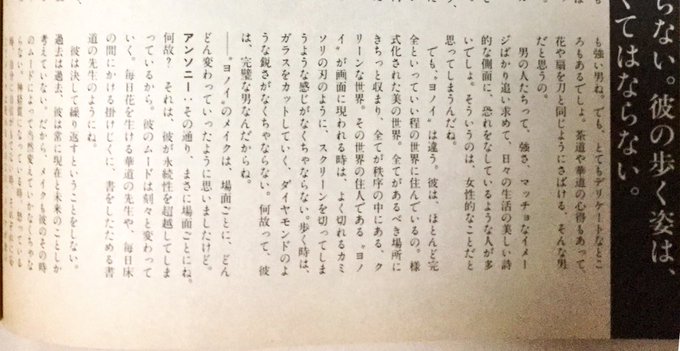 らない。彼の歩く姿は、
くてはならない。
も強い男ね。でも、とてもデリケートなとこ
ろもあるでしょ。茶道や華道の心得もあって、
花や扇を刀と同じようにさばける、そんな男
だと思うの。
男の人たちって、強さ、マッチョなイメー
ジばかり追い求めて、日々の生活の美しい詩
的な側面に、恐れをなしているような人が多
いでしょ。そういうのは、女性的なことだと
思ってしまうんだね。
でも、〝ヨノイ〟は違う。彼は、ほとんど完
全といっていい程の世界に住んでいるの。様
式化された美の世界。全てがあるべき場所に
きちっと収まり、全てが秩序の中にある、ク
リーンな世界。その世界の住人である〝ヨノ
イ〟が画面に現われる時は、よく切れるカミ
ソリの刃のように、スクリーンを切ってしま
うような感じがなくちゃならない。歩く時は、
ガラスをカットしていく、ダイヤモンドのよ
うな鋭さがなくちゃならない。何故って、彼
は、完璧な男なんだからね。
——〝ヨノイ〟のメイクは、場面ごとに、どん
どん変わっていったように思いましたけど。
アンソニー：その通り、まさに場面ごとにね。
何故？　それは、彼が永続性を超越してしま
っているから。彼のムードは刻々と変わって
いく。毎日花を生ける華道の先生や、毎日床
の間にかける掛けじくに、書をしたためる書
道の先生のようにね。
彼は決して繰り返すということをしない。
過去は過去、彼は常に現在と未来のことしか
考えていない。だから、メイクも彼のその時
のムードによって当然変えていかなくちゃな
らない。神経質になっている時、怒っている